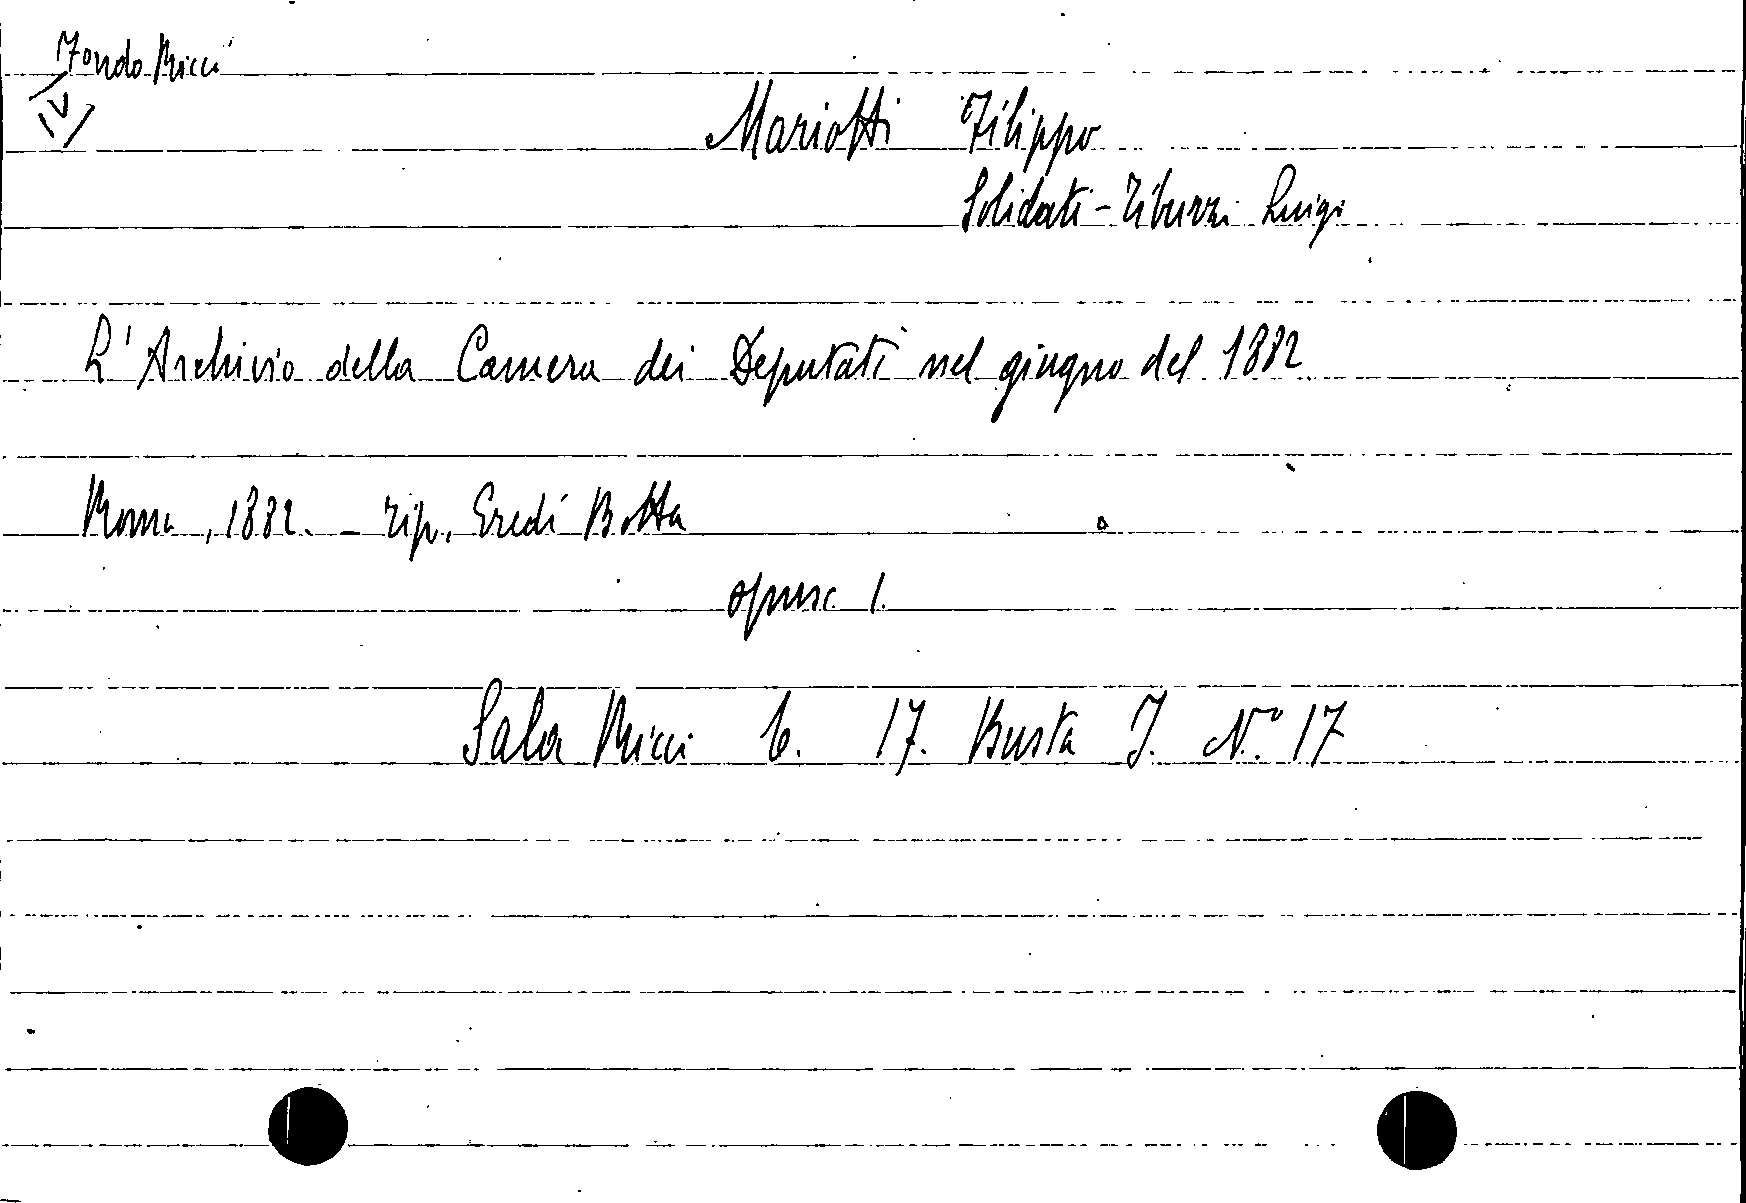 Fondo Ricci
IV
Mariotti Filippo
Solidati-Tiburzi Luigi
L'Archivio della Camera dei Deputati nel giugno del 1882
Roma, 1882. - Tip. Eredi Botta
opusc. 1.
Sala Ricci 6. 17. Busta I. N.° 17